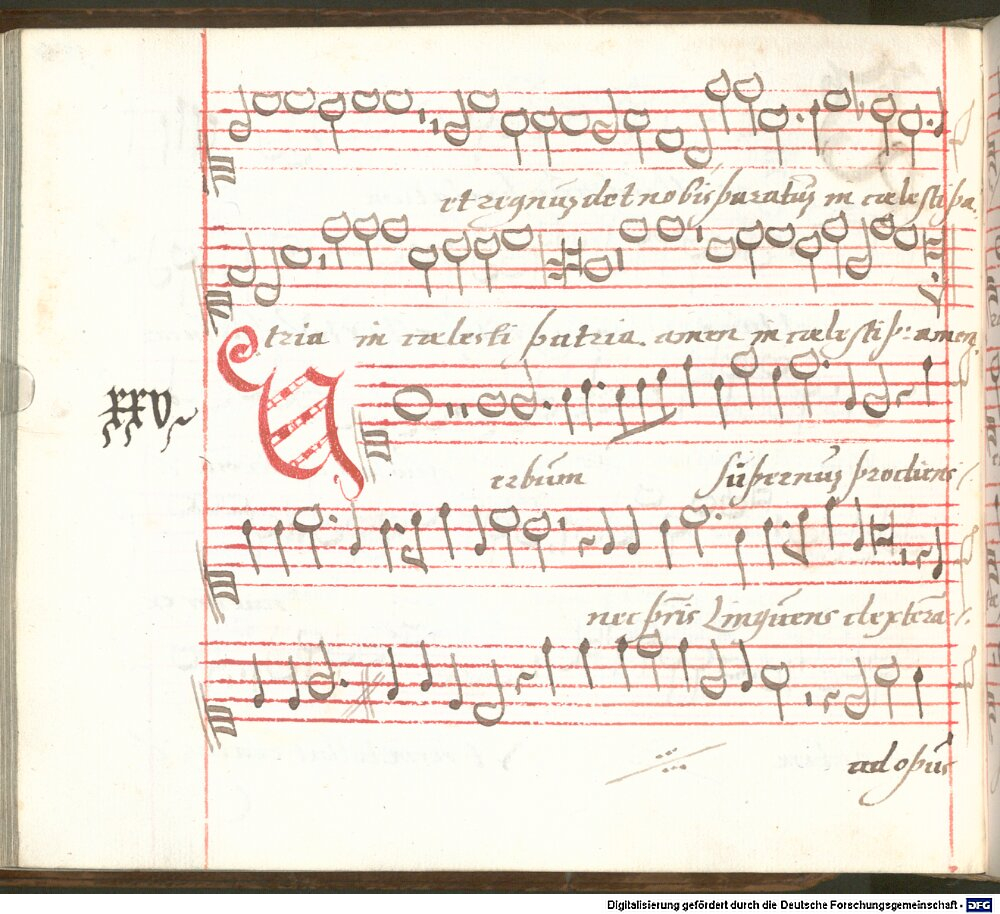 et regnuʒ det nobis paratuʒ in cælesti pa
tria in cælesti patria. amen in cælesti p: amen
XXV
Verbum supernuʒ prodiens
nec pr̄is Linquens dexterā
ad opus
Digitalisierung gefördert durch die Deutsche Forschungsgemeinschaft - DFG